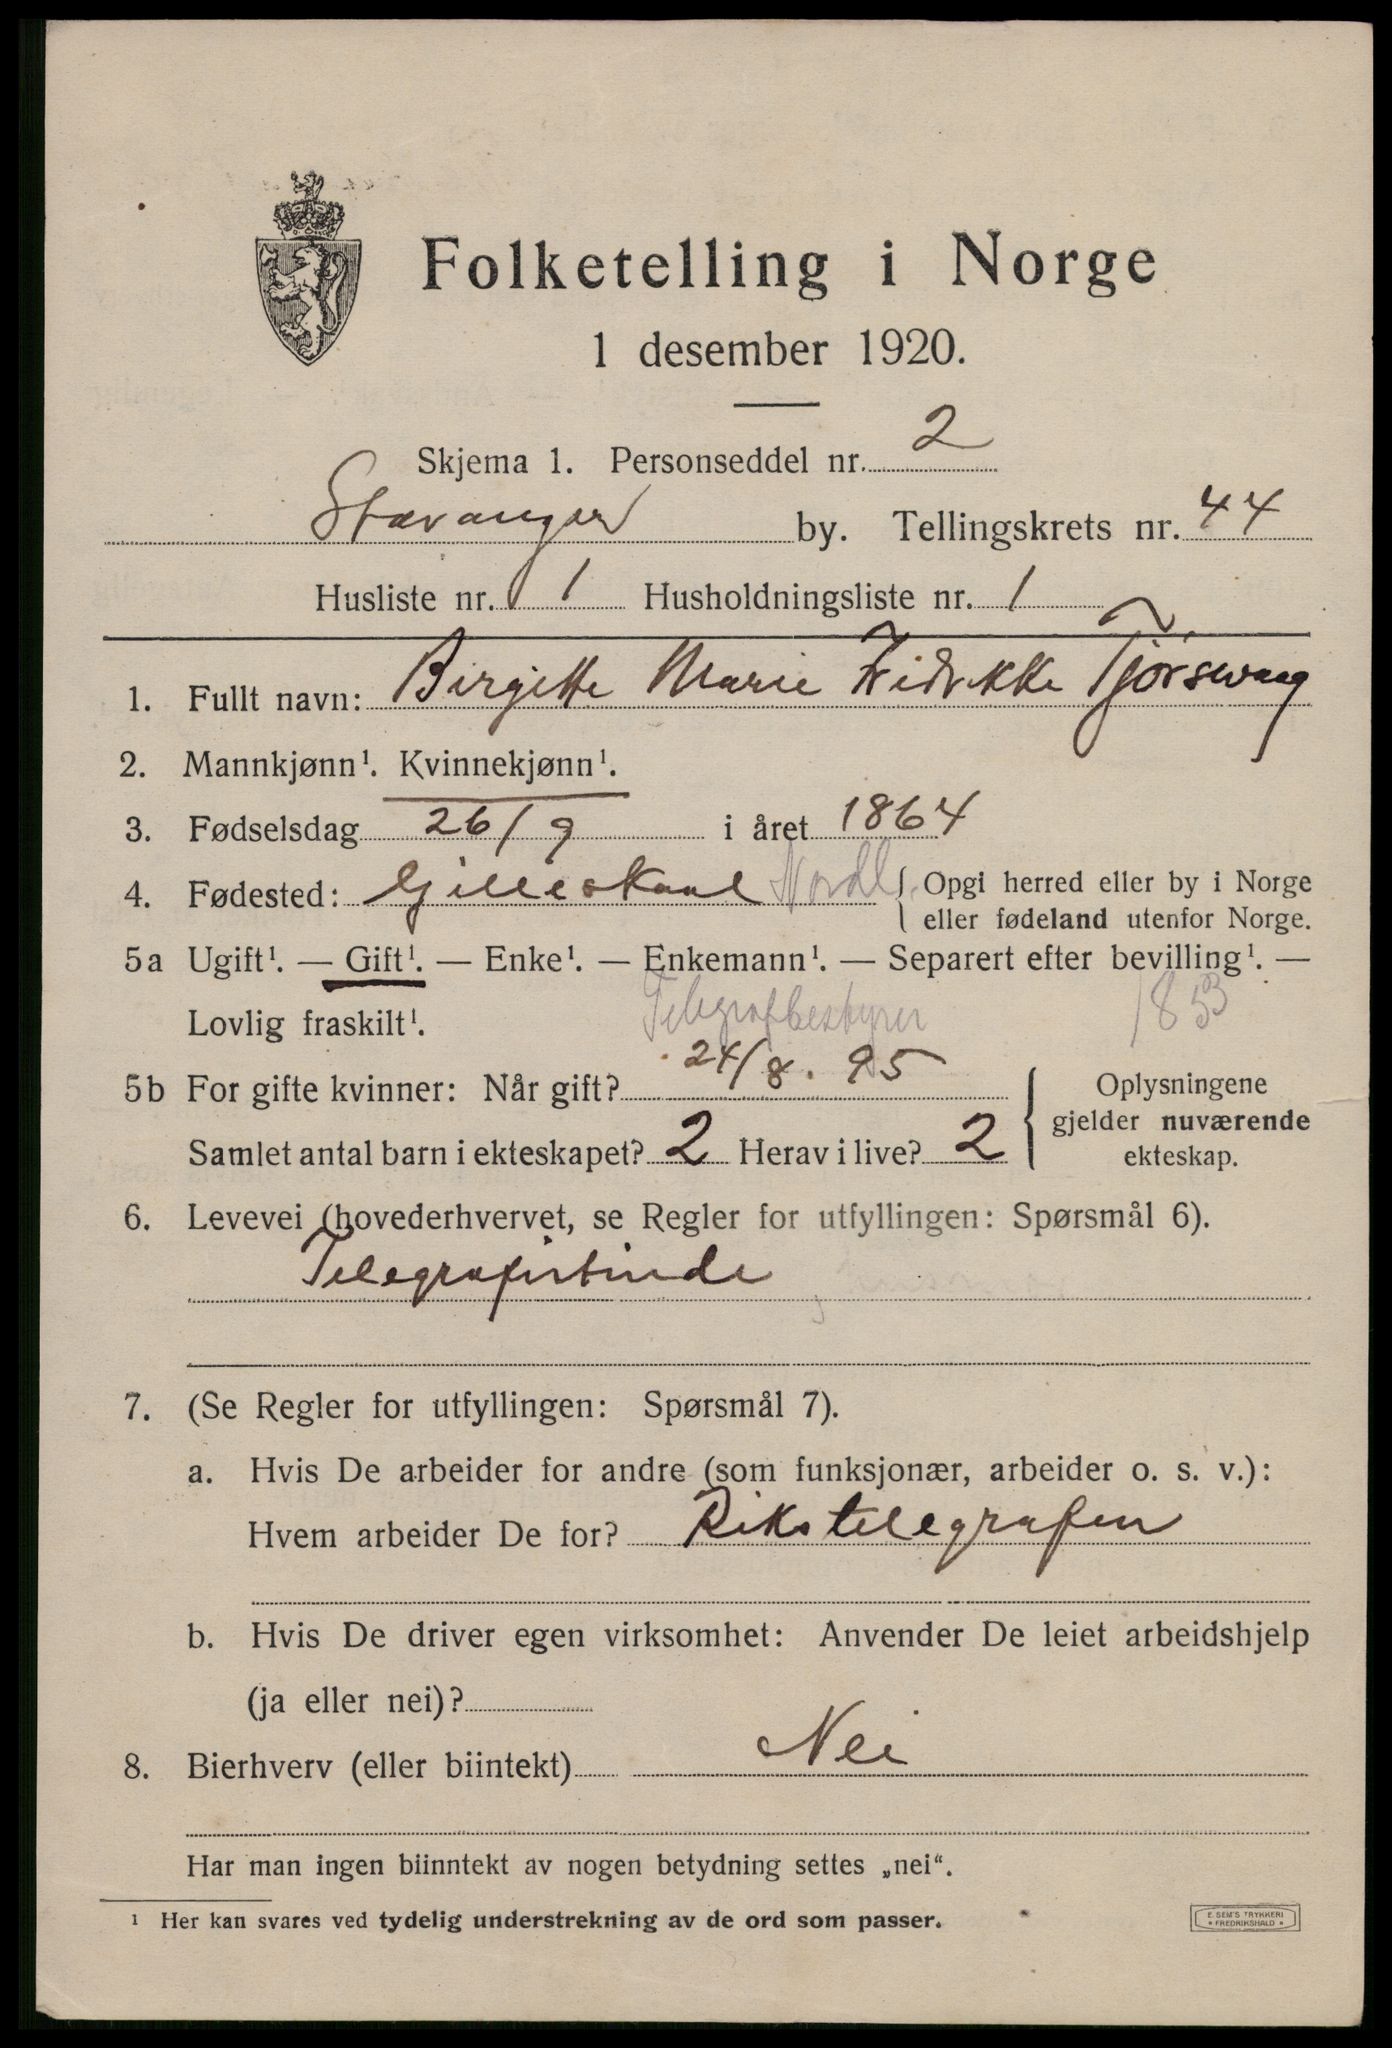 Folketelling i Norge
1 desember 1920.
Skjema 1. Personseddel nr. 2
Stavanger by. Tellingskrets nr. 44
Husliste nr. 1 Husholdningsliste nr. 1
1. Fullt navn: Birgitte Marie Fredrikke Tjørswaag
2. Mannkjønn¹. Kvinnekjønn¹.
3. Fødselsdag 26/9 i året 1864
4. Fødested: Gilleskaal Nordl. { Opgi herred eller by i Norge
eller fødeland utenfor Norge.
5a Ugift¹. — Gift¹. — Enke¹. — Enkemann¹. — Separert efter bevilling¹. —
Lovlig fraskilt¹. Telegrafbestyrer 1853
5b For gifte kvinner: Når gift? 24/8. 95
Samlet antal barn i ekteskapet? 2 Herav i live? 2
{ Oplysningene
gjelder nuværende
ekteskap.
6. Levevei (hovederhvervet, se Regler for utfyllingen: Spørsmål 6).
Telegrafistinde
7. (Se Regler for utfyllingen: Spørsmål 7).
a. Hvis De arbeider for andre (som funksjonær, arbeider o. s. v.):
Hvem arbeider De for? Rikstelegrafen
b. Hvis De driver egen virksomhet: Anvender De leiet arbeidshjelp
(ja eller nei)?
8. Bierhverv (eller biintekt) Nei
Har man ingen biinntekt av nogen betydning settes „nei“.
¹ Her kan svares ved tydelig understrekning av de ord som passer.
E. SEM'S TRYKKERI
* FREDRIKSHALD *